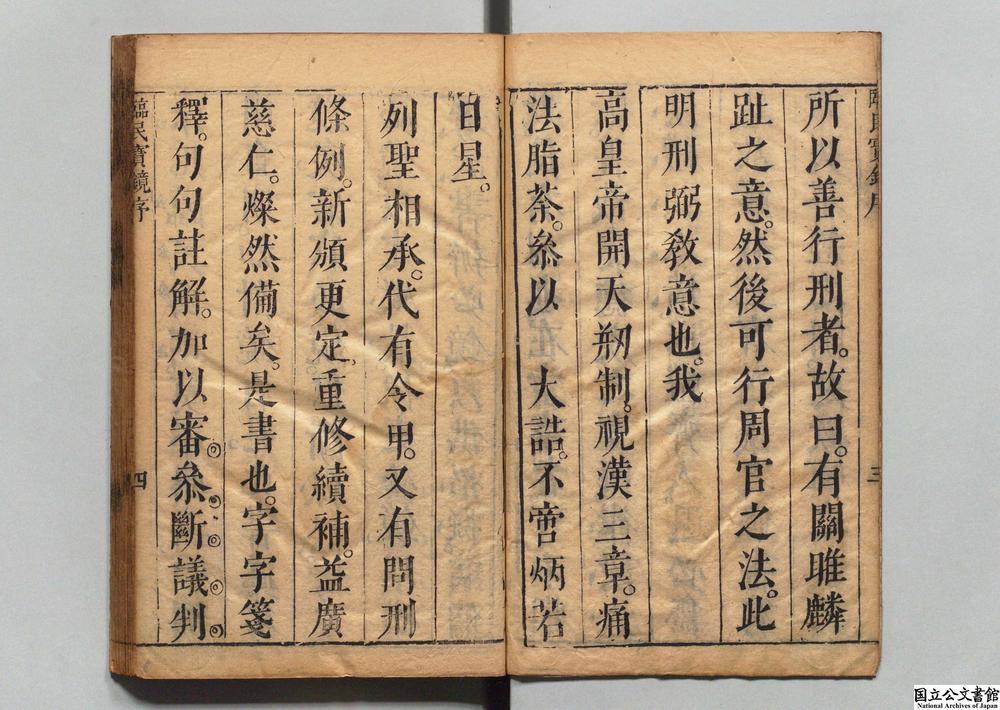 臨民寶鏡序
三
所以善行刑者。故曰。有關雎麟
趾之意。然後可行周官之法。此
明刑弼敎意也。我
高皇帝開天刱制。視漢三章。痛
法脂茶。叅以 大誥。不啻炳若
日星。
列聖相承。代有令甲。又有問刑
條例。新頒更定。重修續補。益廣
慈仁。燦然備矣。是書也。字字箋
釋。句句註解。加以審叅斷議判
臨民寶鏡序
四
国立公文書館
National Archives of Japan